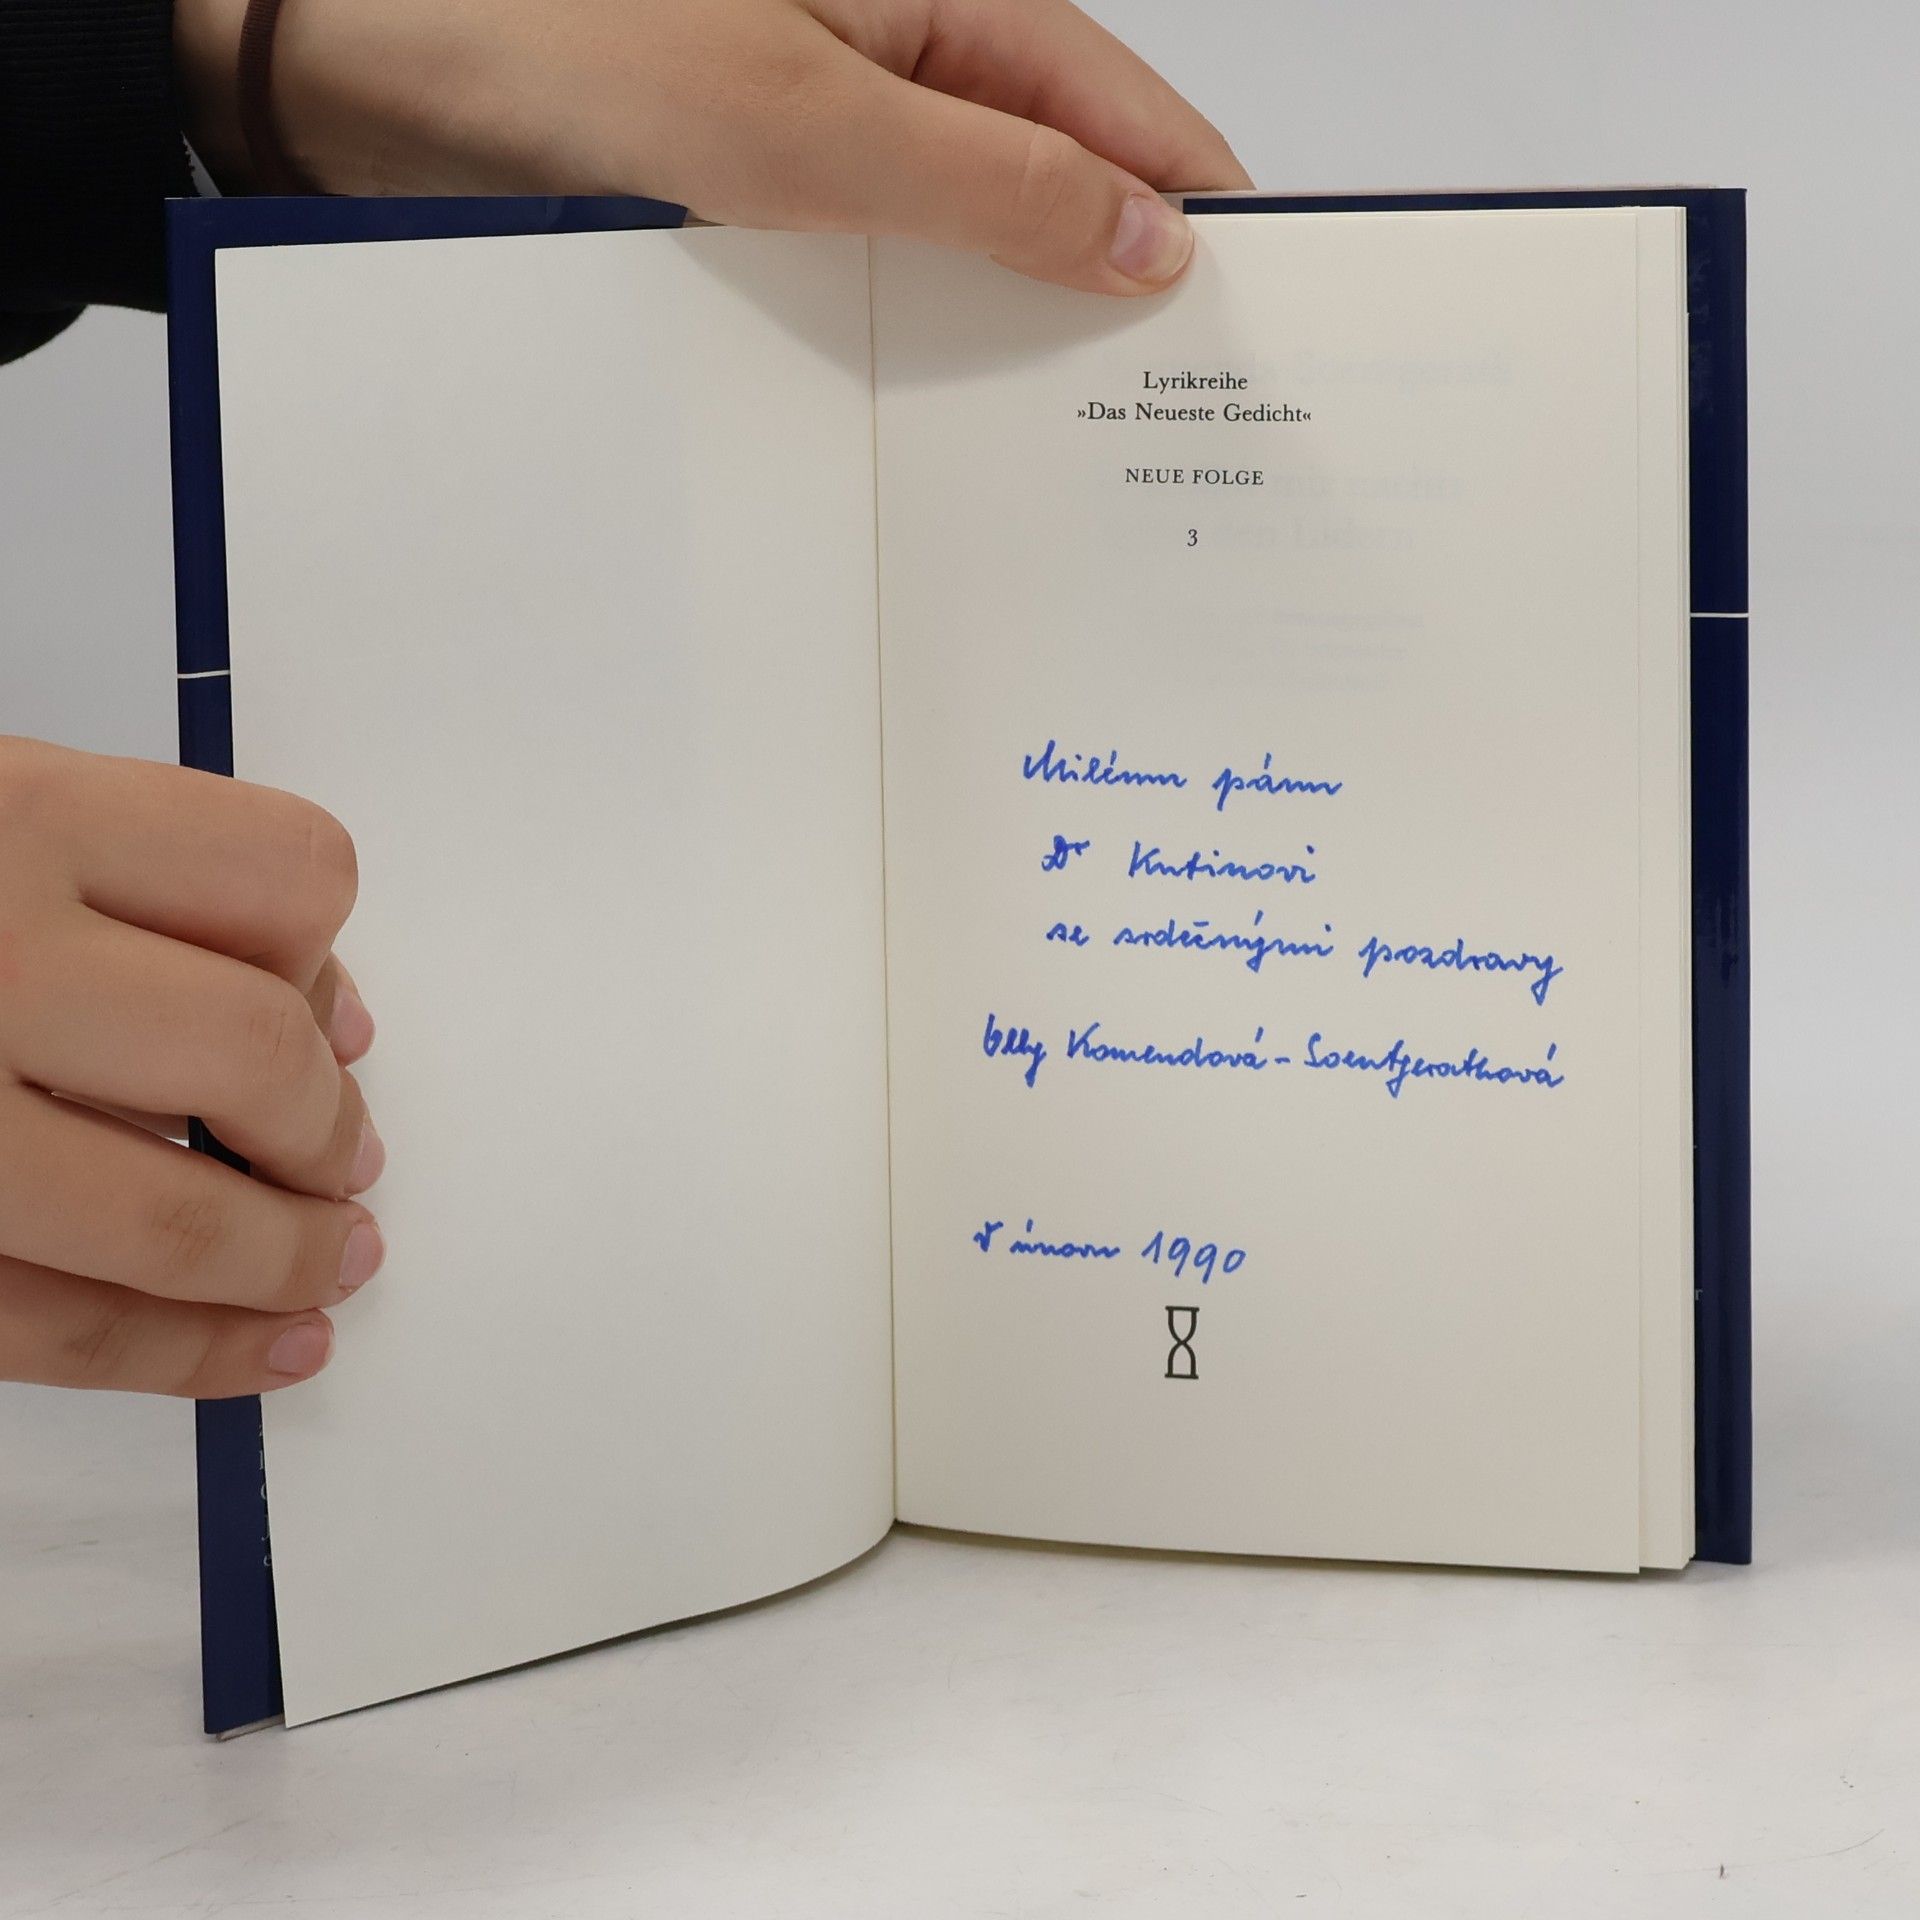 Lyrikreihe
»Das Neueste Gedicht«
NEUE FOLGE
3
Milému pánu
Dr Kutinovi
se srdečnými pozdravy
Olly Komendová-Soentgerathová
V únoru 1990